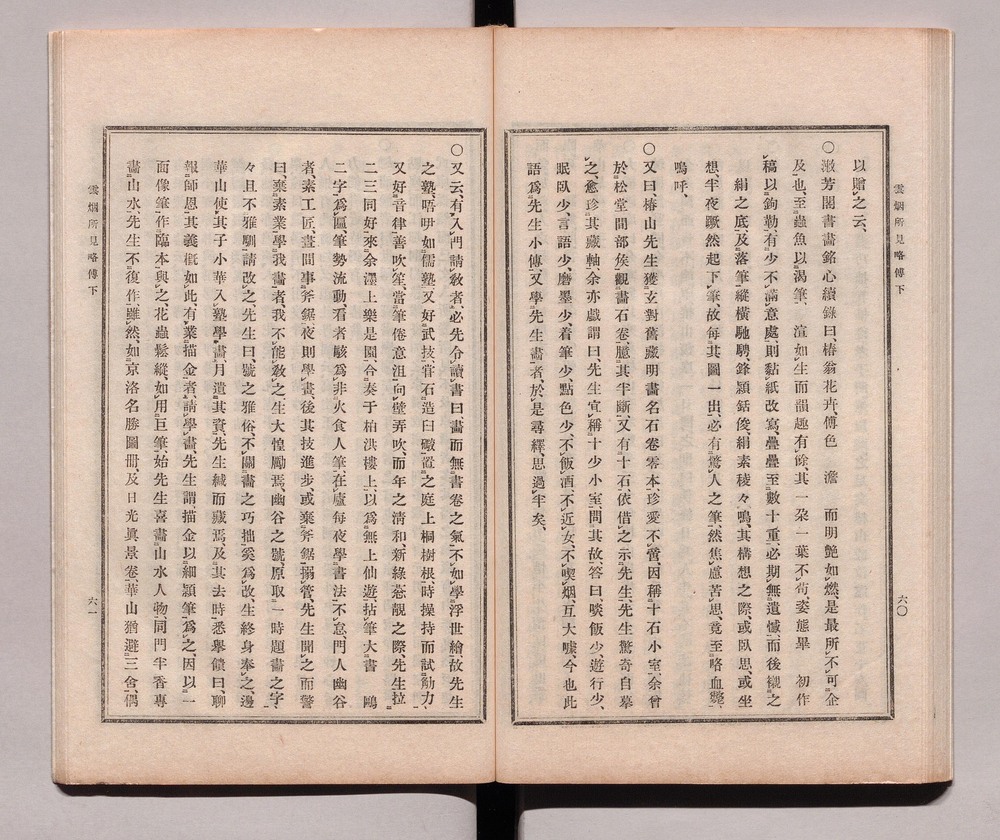 雲烟所見略傳下
六〇
以贈之云、
〇澂芳閣書畵銘心續錄曰、椿翁花卉、傅色 澹 而明艶如燃、是最所不可企
及也、至蟲魚以渴筆、 渲如生而韻趣有餘、其一朶一葉不苟、姿態畢 初作
稿以鉤勒、有少不滿意處、則黏紙改寫、疊疊至數十重、必期無遺憾、而後襯之
絹之底、及落筆、縱橫馳騁、鋒穎銛俊、絹素稜々鳴、其構想之際、或臥思、或坐
想、半夜蹶然起下筆、故每其圖一出、必有驚人之筆、然焦慮苦思、竟至咯血斃、
嗚呼、
〇又曰、椿山先生獲玄對舊藏明畵名石卷零本、珍愛不啻、因稱十石小室、余曾
於松堂間部矦觀畵石卷、臆其半斷、又有十石、依借之示先生、先生驚奇自摹
之、愈珍其藏軸、余亦戲謂曰、先生宜稱十少小室、問其故、答曰、啖飯少、遊行少、
眠臥少、言語少、磨墨少、着筆少、點色少、不飯酒、不近女、不喫烟、互大噱、今也此
語爲先生小傳、又學先生畵者、於是尋繹、思過半矣、
〇又云、有入門請敎者、必先令讀書曰、畵而無書卷之氣、不如學浮世繪、故先生
之塾、唔吚如儒塾、又好武技、甞石造臼礅、置之庭上桐樹根、時操持而試筋力、
又好音律、善吹笙、當筆倦意沮、向壁弄吹、而年之淸和新綠蓊靚之際、先生拉
二三同好來余 上樂是園、合奏于柏洪樓上、以爲無上仙遊、拈筆大書 鷗
二字爲匾、筆勢流動、看者駭爲非火食人筆、在廬每夜學書法不怠、門人幽谷
者、素工匠、晝間事斧鋸、夜則學畵、後其技進步、或棄斧鋸搦管、先生聞之而警
曰、棄素業學我畵者、我不能敎之、生大惶勵焉、幽谷之號、原取一時題畵之字、
々且不雅馴、請改之、先生曰、號之雅俗、不關畵之巧拙、奚爲改、生終身奉之、邊
華山使其子小華入塾學畵、月遣其資、先生緘而藏焉、及其去時、悉舉饋曰、聊
報師恩、其義槪如此、有業描金者、請學畵、先生謂、描金以細穎筆爲之、因以一
面像筆作臨本與之、花蟲鬆縱如用巨筆、始先生喜畵山水人物、同門半香專
畵山水、先生不復作、雖然如京洛名勝圖冊、及日光眞景卷、華山猶避三舍、偶
雲烟所見略傳下
六一